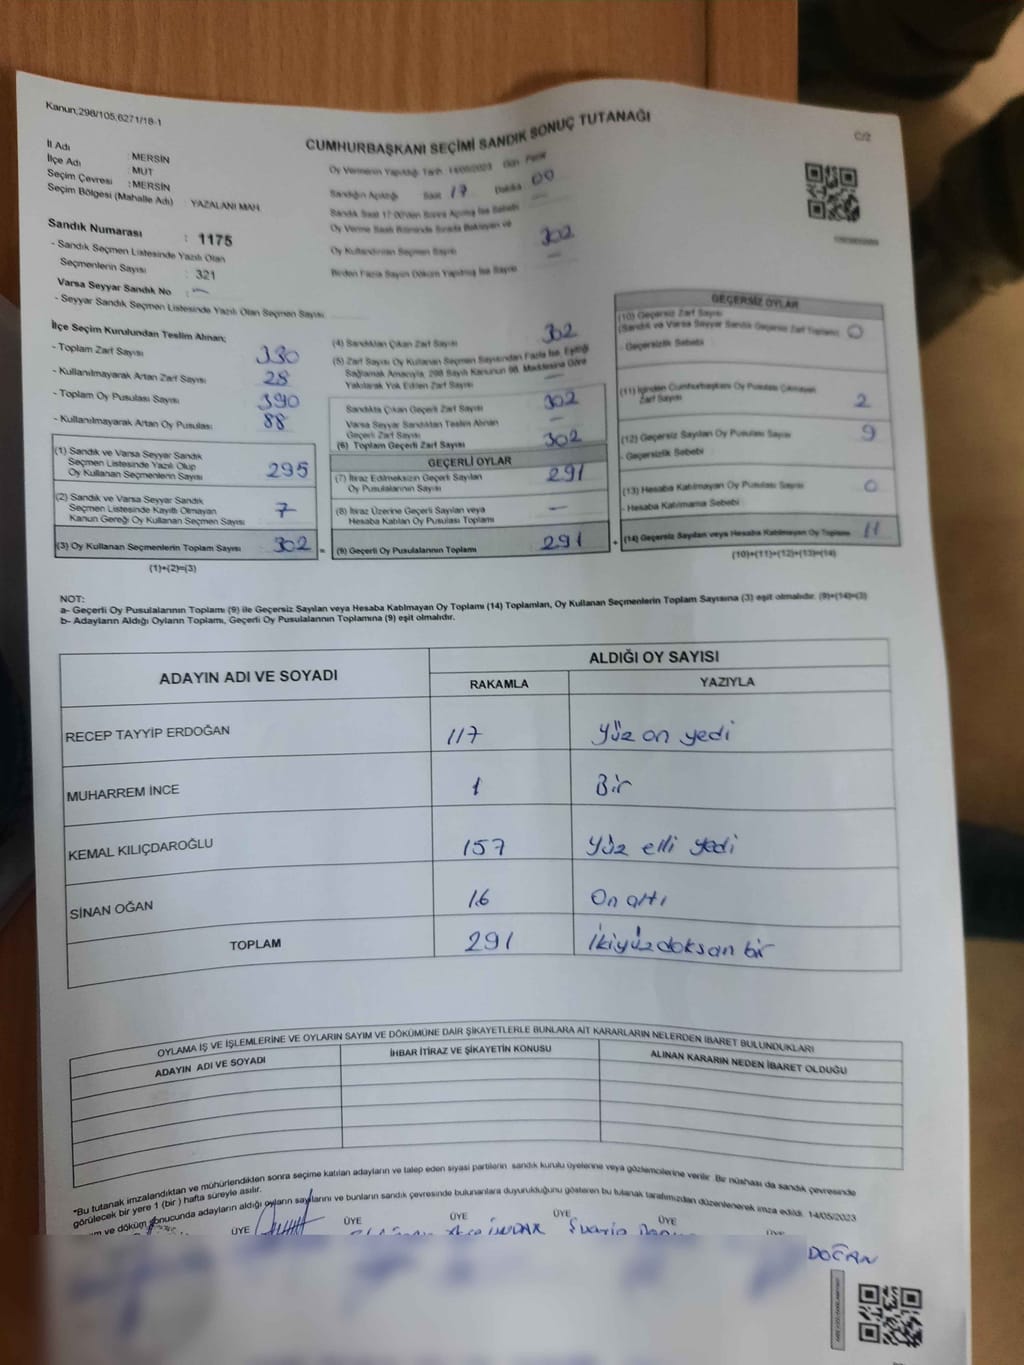 Kanun;298/105,6271/18-1
CUMHURBAŞKANI SEÇİMİ SANDIK SONUÇ TUTANAĞI
C/2
İl Adı : MERSİN
İlçe Adı : MUT
Seçim Çevresi : MERSİN
Seçim Bölgesi (Mahalle Adı) : YAZALANI MAH.
Sandık Numarası : 1175
- Sandık Seçmen Listesinde Yazılı Olan
Seçmenlerin Sayısı : 321
Varsa Seyyar Sandık No : —
- Seyyar Sandık Seçmen Listesinde Yazılı Olan Seçmen Sayısı
Oy Vermenin Yapıldığı Tarih 14/05/2023 Gün Pazar
Sandığın Açıldığı Saat 17 Dakika 00
Sandık Saat 17:00'den Sonra Açılmış İse Sebebi —
Oy Verme Saati Bitiminde Sırada Bekleyen ve
Oy Kullandırılan Seçmen Sayısı 302
Birden Fazla Sayım Döküm Yapılmış İse Sayısı —
İlçe Seçim Kurulundan Teslim Alınan;
- Toplam Zarf Sayısı 330
- Kullanılmayarak Artan Zarf Sayısı 28
- Toplam Oy Pusulası Sayısı 390
- Kullanılmayarak Artan Oy Pusulası 88
(1) Sandık ve Varsa Seyyar Sandık
Seçmen Listesinde Yazılı Olup
Oy Kullanan Seçmenlerin Sayısı 295
(2) Sandık ve Varsa Seyyar Sandık
Seçmen Listesinde Kayıtlı Olmayan
Kanun Gereği Oy Kullanan Seçmen Sayısı 7
(3) Oy Kullanan Seçmenlerin Toplam Sayısı 302 =
(1)+(2)=(3)
(4) Sandıktan Çıkan Zarf Sayısı 302
(5) Zarf Sayısı Oy Kullanan Seçmen Sayısından Fazla İse, Eşitliği
Sağlamak Amacıyla, 298 Sayılı Kanunun 98. Maddesine Göre
Yakılarak Yok Edilen Zarf Sayısı —
Sandıkta Çıkan Geçerli Zarf Sayısı 302
Varsa Seyyar Sandıktan Teslim Alınan
Geçerli Zarf Sayısı —
(6) Toplam Geçerli Zarf Sayısı 302
GEÇERLİ OYLAR
(7) İtiraz Edilmeksizin Geçerli Sayılan
Oy Pusulalarının Sayısı 291
(8) İtiraz Üzerine Geçerli Sayılan veya
Hesaba Katılan Oy Pusulası Toplamı —
(9) Geçerli Oy Pusulalarının Toplamı 291 +
GEÇERSİZ OYLAR
(10) Geçersiz Zarf Sayısı
(Sandık ve Varsa Seyyar Sandık Geçersiz Zarf Toplamı) 0
- Geçersizlik Sebebi
(11) İçinden Cumhurbaşkanı Oy Pusulası Çıkmayan
Zarf Sayısı 2
(12) Geçersiz Sayılan Oy Pusulası Sayısı 9
- Geçersizlik Sebebi
(13) Hesaba Katılmayan Oy Pusulası Sayısı 0
- Hesaba Katılmama Sebebi
(14) Geçersiz Sayılan veya Hesaba Katılmayan Oy Toplamı 11
(10)+(11)+(12)+(13)=(14)
NOT:
a- Geçerli Oy Pusulalarının Toplamı (9) ile Geçersiz Sayılan veya Hesaba Katılmayan Oy Toplamı (14) Toplamları, Oy Kullanan Seçmenlerin Toplam Sayısına (3) eşit olmalıdır. (9)+(14)=(3)
b- Adayların Aldığı Oyların Toplamı, Geçerli Oy Pusulalarının Toplamına (9) eşit olmalıdır.
ADAYIN ADI VE SOYADI ALDIĞI OY SAYISI
RAKAMLA YAZIYLA
RECEP TAYYİP ERDOĞAN 117 Yüz on yedi
MUHARREM İNCE 1 Bir
KEMAL KILIÇDAROĞLU 157 Yüz elli yedi
SİNAN OĞAN 16 On altı
TOPLAM 291 İkiyüz doksan bir
OYLAMA İŞ VE İŞLEMLERİNE VE OYLARIN SAYIM VE DÖKÜMÜNE DAİR ŞİKAYETLERLE BUNLARA AİT KARARLARIN NELERDEN İBARET BULUNDUKLARI
ADAYIN ADI VE SOYADI İHBAR İTİRAZ VE ŞİKAYETİN KONUSU ALINAN KARARIN NEDEN İBARET OLDUĞU
"Bu tutanak imzalandıktan ve mühürlendikten sonra seçime katılan adayların ve talep eden siyasi partilerin sandık kurulu üyelerine veya gözlemcilerine verilir. Bir nüshası da sandık çevresinde
görülecek bir yere 1 (bir) hafta süreyle asılır.
ve döküm sonucunda adayların aldığı oyların sayılarını ve bunların sandık çevresinde bulunanlara duyurulduğunu gösteren bu tutanak tarafımızdan düzenlenerek imza edildi. 14/05/2023
ÜYE ÜYE ÜYE ÜYE ÜYE
DOĞAN